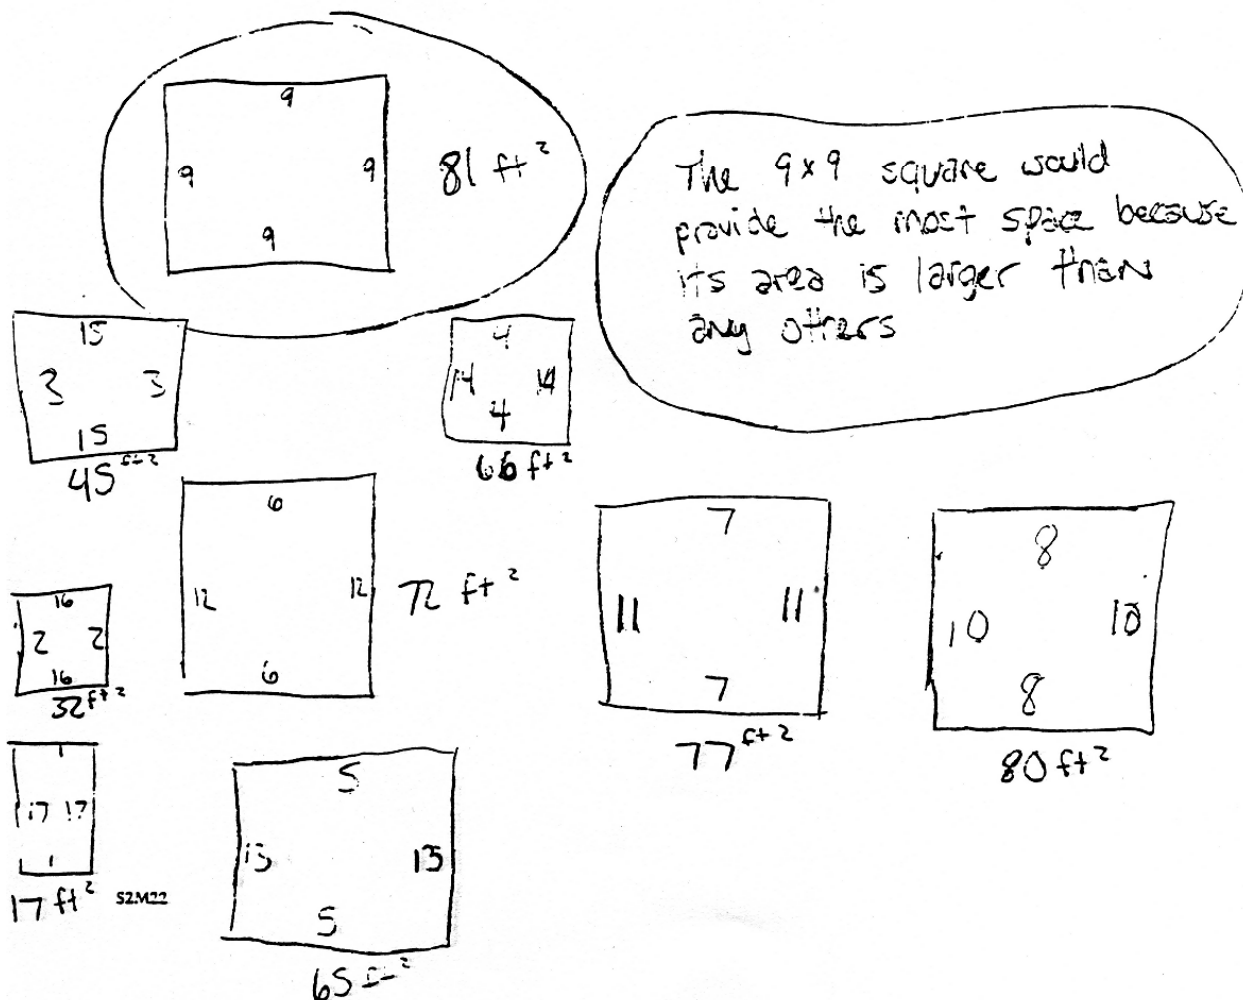 9
9 9 81 ft²
9
The 9x9 square would
provide the most space because
its area is larger than
any others
15
3 3
15
45 ft²
4
14 14
4
66 ft²
6
12 12 72 ft²
6
7
11 11
7
77 ft²
8
10 10
8
80 ft²
16
2 2
16
32 ft²
1
17 17
1
17 ft²
S2M22
5
13 13
5
65 ft²